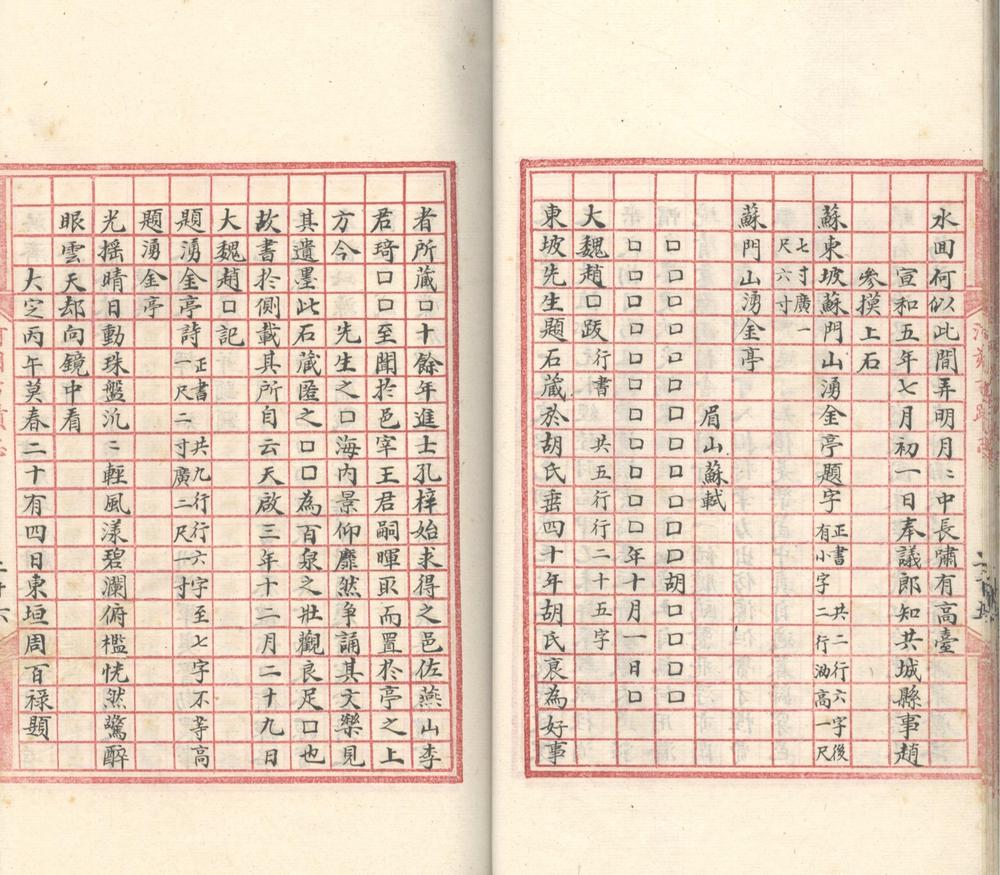 水回何似此間弄明月〻中長嘯有高臺
宣和五年七月初一日奉議郎知共城縣事趙
參摸上石
蘇東坡蘇門山湧金亭題字正書共二行六字後有小字二行油高一尺
七寸廣一尺六寸
蘇門山湧金亭
眉山蘇軾
口口口口口口口口口口口口胡口口口口
口口口口口口口口口口口年十月一日口
大魏趙口跋行書共五行行二十五字
東坡先生題石蔵於胡氏垂四十年胡氏哀為好事
者所蔵口十餘年進士孔梓始求得之邑佐燕山李
君琦口口至聞於邑宰王君嗣暉取而置於亭之上
方今口口先生之口海内景仰靡然争誦其文樂見
其遺墨此石蔵匿之口口為百泉之壯觀良足口也
故書於側載其所自云天啟三年十二月二十九日
大魏趙口記
題湧金亭詩正書共九行行六字至七字不等高一尺二寸廣二尺一寸
題湧金亭
光摇晴日動珠盤汎〻輕風漾碧瀾俯檻恍然驚醉
眼雲天却向鏡中看
大定丙午莫春二十有四日東垣周百禄題